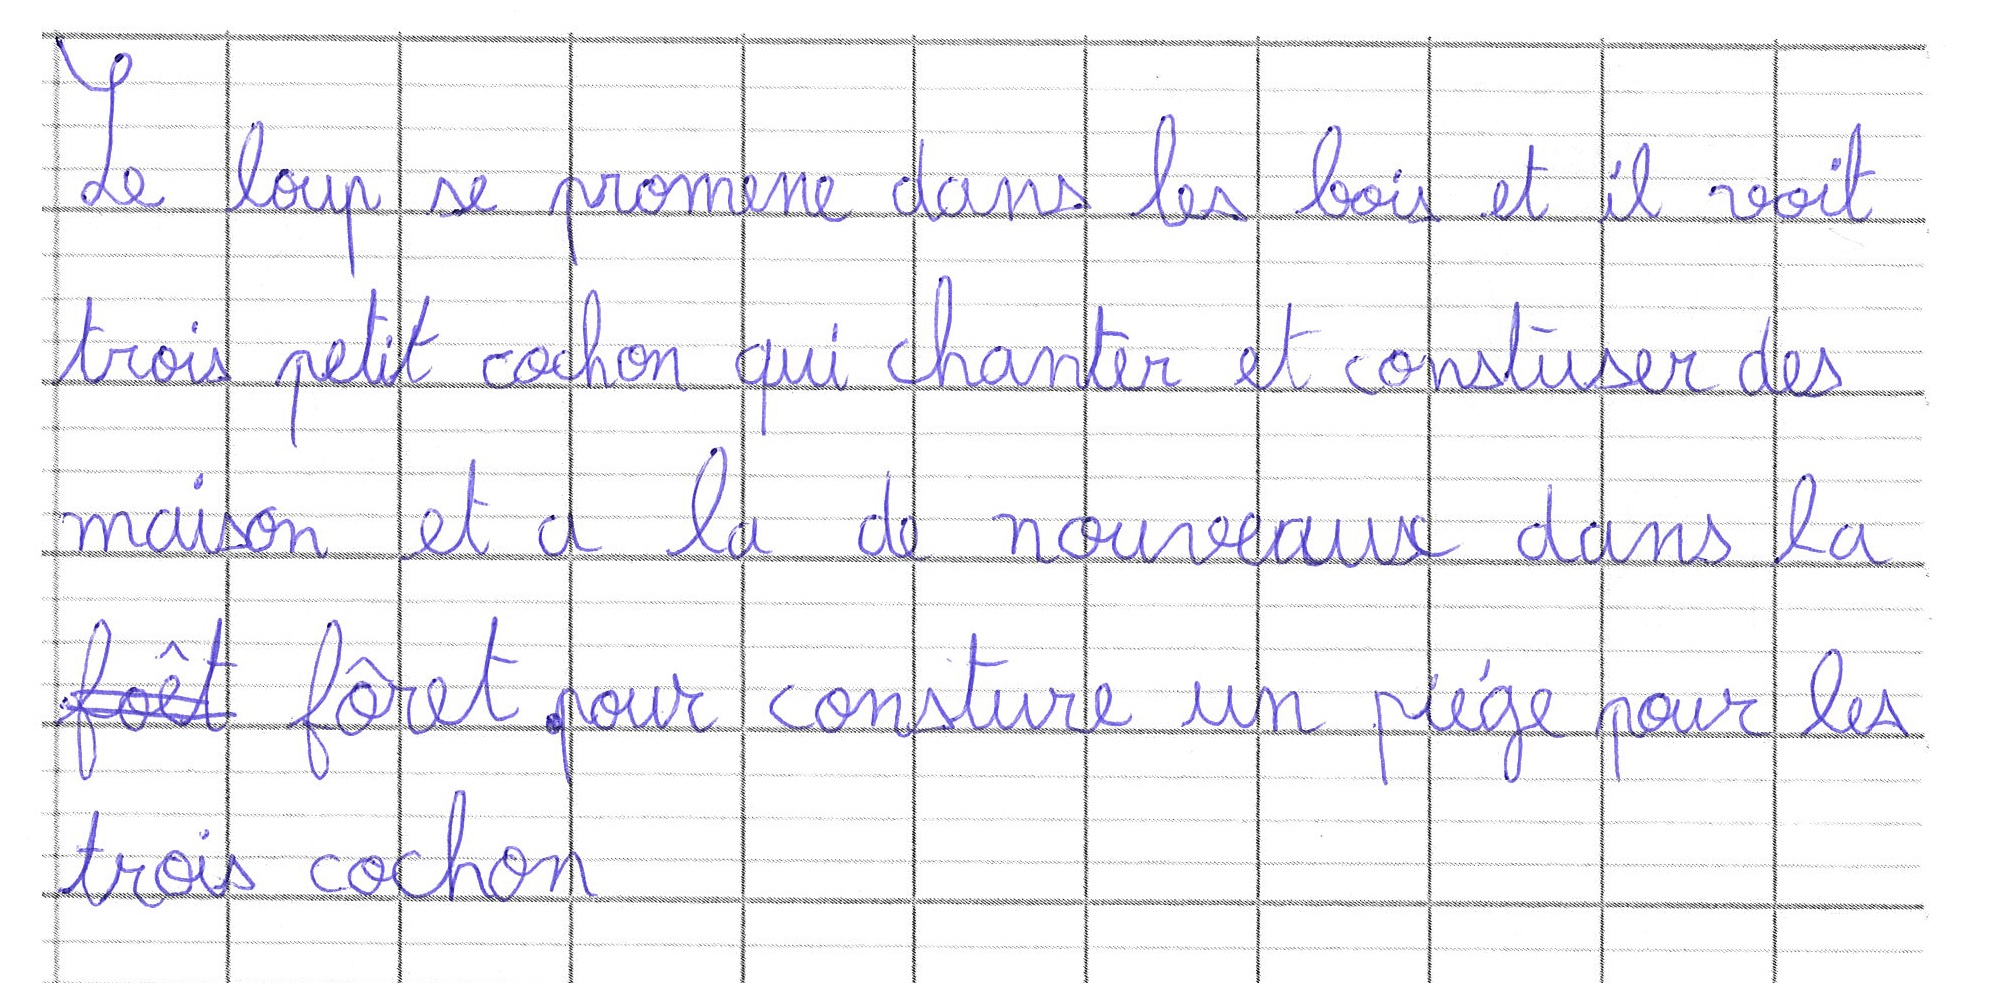 Le loup se promene dans les bois et il voit
trois petit cochon qui chanter et constuser des
maison et a la de nouveaux dans la
foêt fôret pour consture un piége pour les
trois cochon